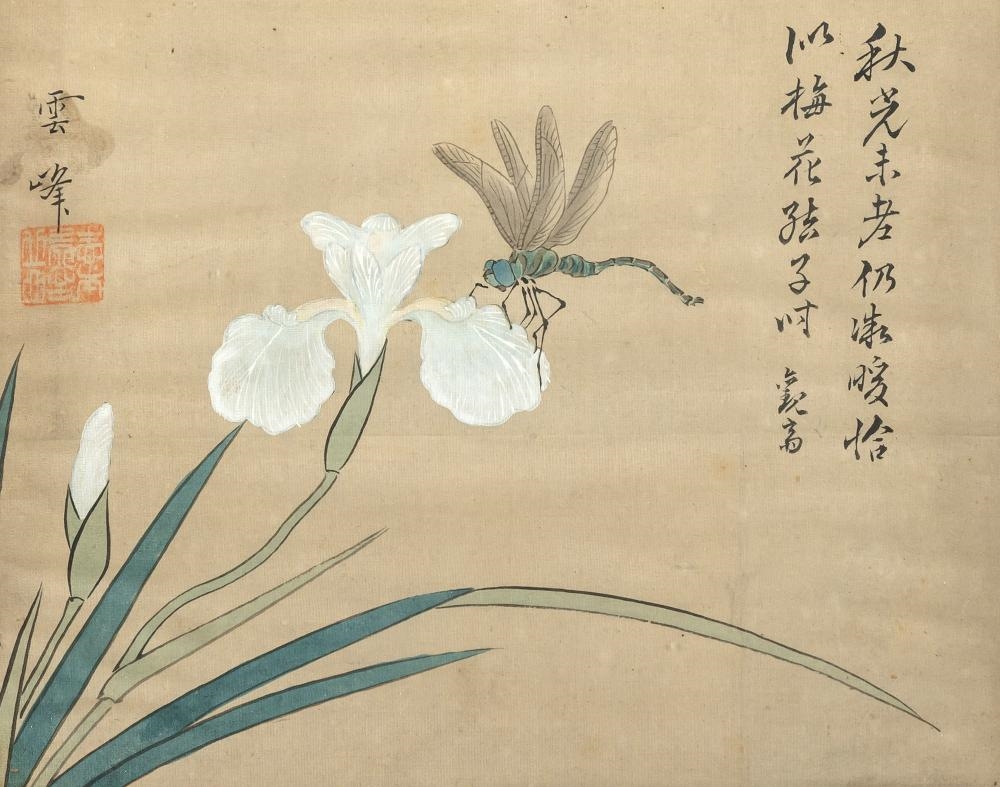 秋光未老仍微暖恰
似梅花結子時
雲峰